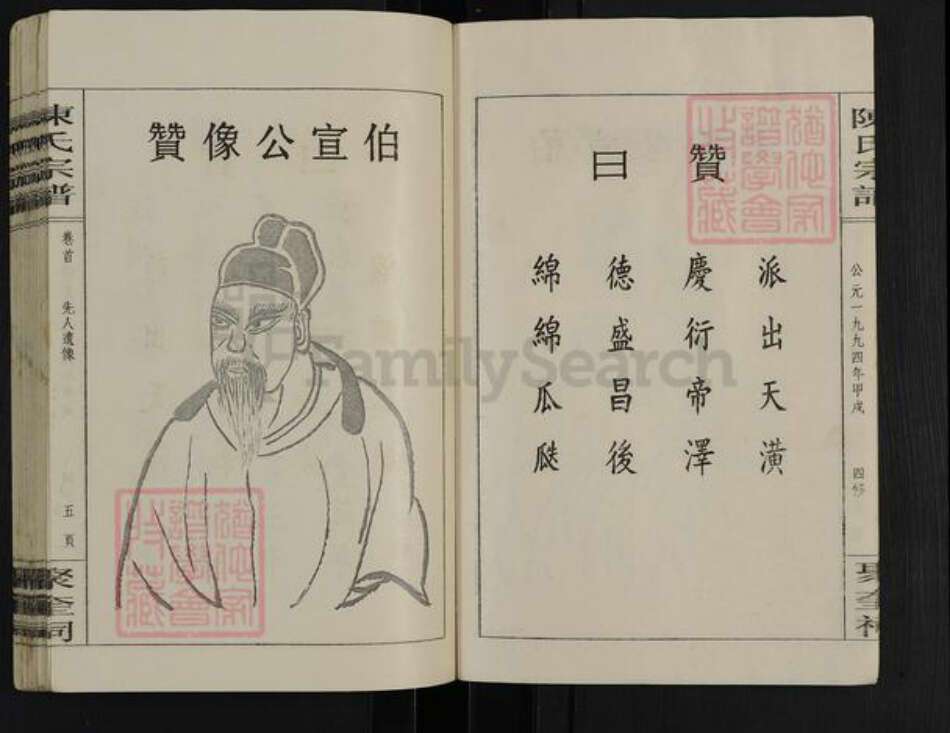 陳氏宗譜
公元一九九四年甲戌
四修
贊曰
派出天潢
慶衍帝澤
德盛昌後
綿綿瓜瓞
伯宣公像贊
陳氏宗譜
卷首
先人遺像
五頁
聚奎祠
FamilySearch